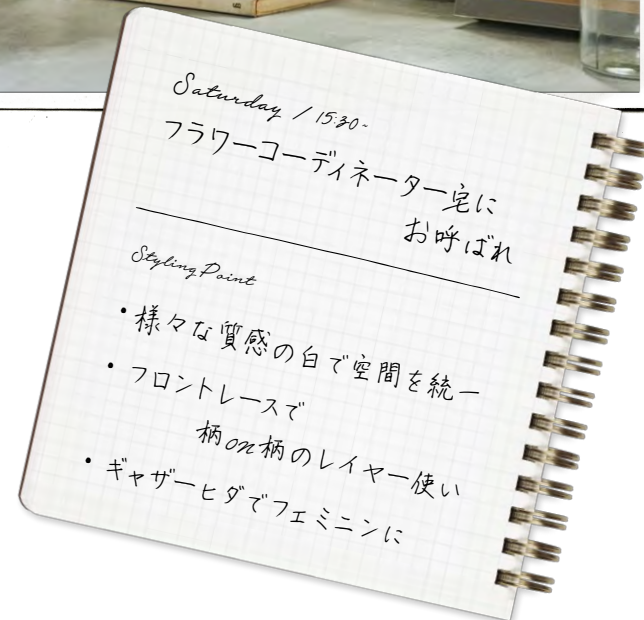 Saturday / 15:30-
フラワーコーディネーター宅に
お呼ばれ
Styling Point
・様々な質感の白で空間を統一
・フロントレースで
柄on柄のレイヤー使い
・ギャザーヒダでフェミニンに